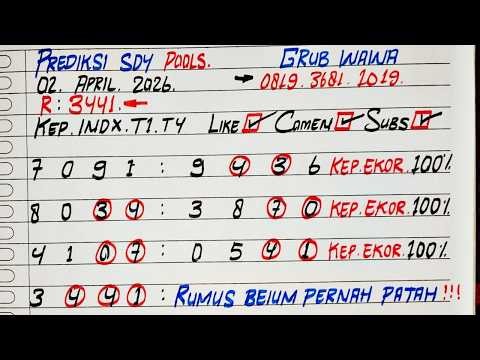 PREDIKSI SDY POOLS. GRUB WAWA
02. APRIL. 2026. → 0819.3681.2019.
R: 3441. ←
KEP. INDX. T1. T4 LIKE ☑ COMEN ☑ SUBS ☑
7 0 9 1 : 9 4 3 6 KEP.EKOR.100%
8 0 3 4 : 3 8 7 0 KEP.EKOR.100%
4 1 0 7 : 0 5 4 1 KEP.EKOR.100%
3 4 4 1 : RUMUS BEIUM PERNAH PATAH !!!